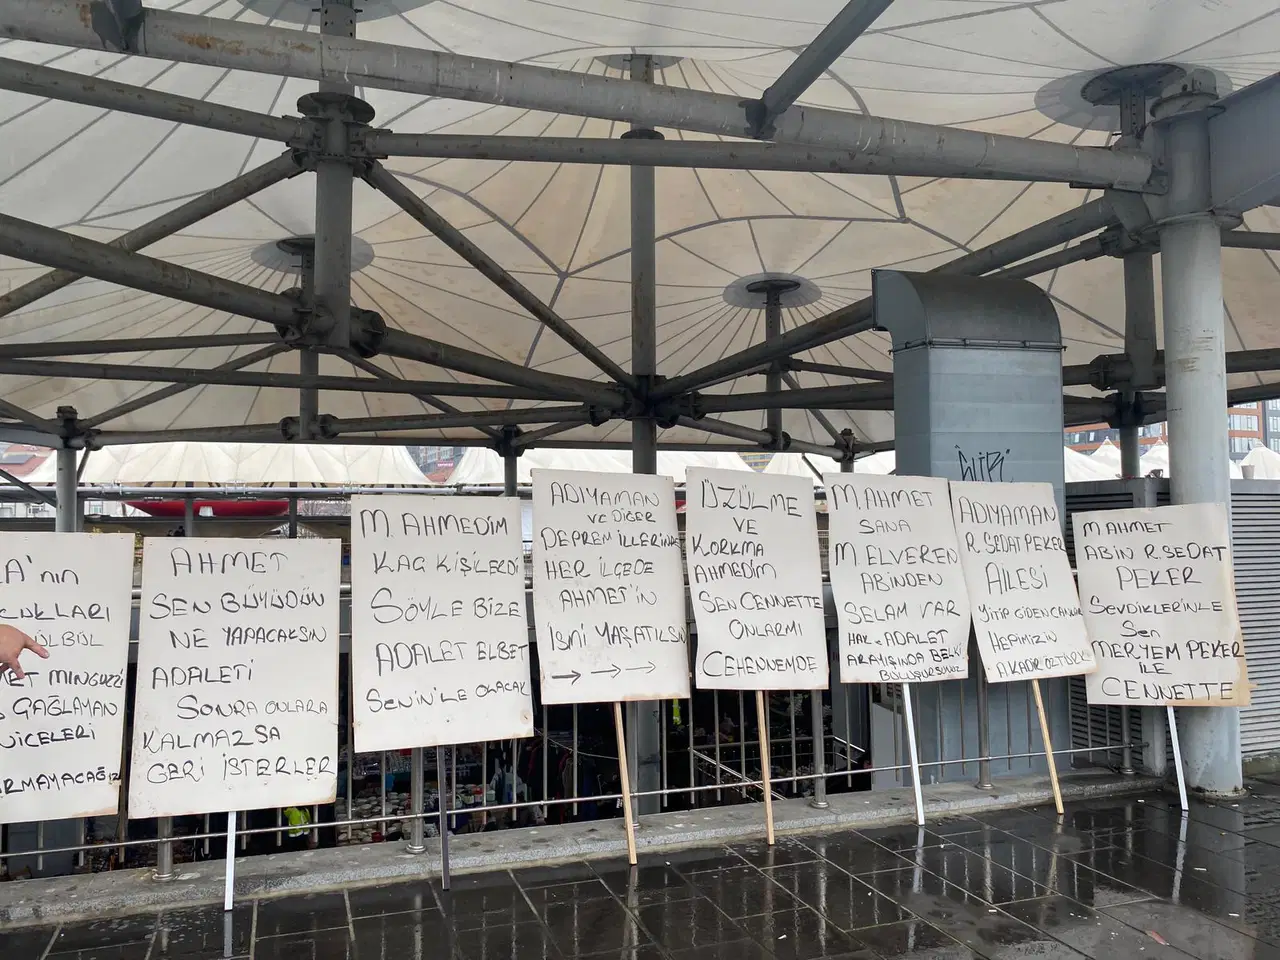 A'nın
ÇUKLARI
ÜLBÜL
MET MINGUZZI
ÇAĞLAYAN
NİCELERİ
AHMET
SEN BÜYÜDÜN
NE YAPACAKSIN
ADALETİ
SONRA ONLARA
KALMAZSA
GERİ İSTERLER
M. AHMEDİM
KAÇ KİŞİLERDİ
SÖYLE BİZE
ADALET ELBET
SENİN İLE OLACAK
ADIYAMAN
VE DİĞER
DEPREM İLLERİNDE
HER İLÇEDE
AHMET'İN
İSMİ YAŞATILSIN
ÜZÜLME
VE
KORKMA
AHMEDİM
SEN CENNETTE
ONLARMI
CEHENNEMDE
M. AHMET
SANA
M. ELVEREN
ABİNDEN
SELAM VAR
HAK VE ADALET
ARAYIŞINDA BELKİ
BULUŞURSUNUZ
ADIYAMAN
R. SEDAT PEKER
AİLESİ
YİTİP GİDEN CANLAR
HEPİMİZİN
A KADİR ÖZTÜRK
MAHMET
ABİN R. SEDAT
PEKER
SEVDİKLERİNLE
Sen
MERYEM PEKER
İLE
CENNETTE